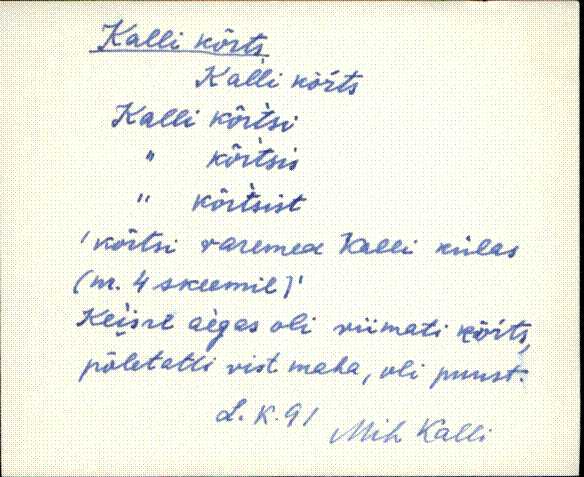 Kalli kõrts
Kalli kõrts
Kalli kõrtsi
" kõrtsis
" kõrtsist
'kõrtsi varemed Kalli külas
(nr. 4 skeemil)'
Keisre aegas oli viimati kõrts,
põletatti vist maha, oli puust.
L. K. 91 Mih Kalli